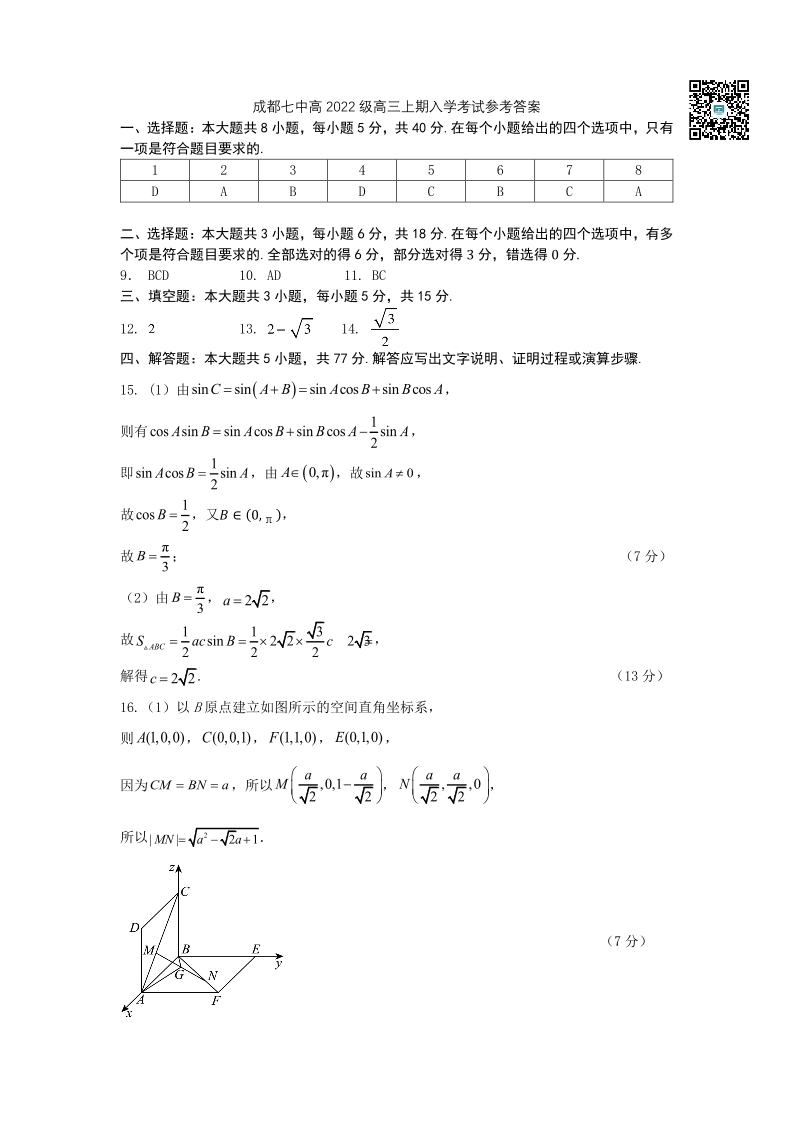 成都七中高 2022 级高三上期入学考试参考答案
一、选择题：本大题共 8 小题，每小题 5 分，共 40 分.在每个小题给出的四个选项中，只有
一项是符合题目要求的.
1 2 3 4 5 6 7 8
D A B D C B C A
二、选择题：本大题共 3 小题，每小题 6 分，共 18 分.在每个小题给出的四个选项中，有多
个项是符合题目要求的.全部选对的得 6 分，部分选对得 3 分，错选得 0 分.
9． BCD 10. AD 11. BC
三、填空题：本大题共 3 小题，每小题 5 分，共 15 分.
12. 2 13. 2−√3 14. √3/2
四、解答题：本大题共 5 小题，共 77 分.解答应写出文字说明、证明过程或演算步骤.
15. (1) 由 sin C = sin(A+B) = sin A cos B + sin B cos A，
则有 cos A sin B = sin A cos B + sin B cos A − 1/2 sin A，
即 sin A cos B = 1/2 sin A，由 A∈(0,π)，故 sin A ≠ 0，
故 cos B = 1/2，又B ∈ (0,π)，
故 B = π/3； （7 分）
（2）由 B = π/3，a = 2√2，
故 S△ABC = 1/2 ac sin B = 1/2 × 2√2 × √3/2 c = 2√3，
解得 c = 2√2. （13 分）
16.（1）以 B 原点建立如图所示的空间直角坐标系，
则 A(1,0,0)，C(0,0,1)，F(1,1,0)，E(0,1,0)，
因为 CM = BN = a，所以 M(a/√2,0,1−a/√2)，N(a/√2,a/√2,0)，
所以 |MN|=√(a²−√2a+1).
z
C
D
M B E
y
G N
A F
x
（7 分）